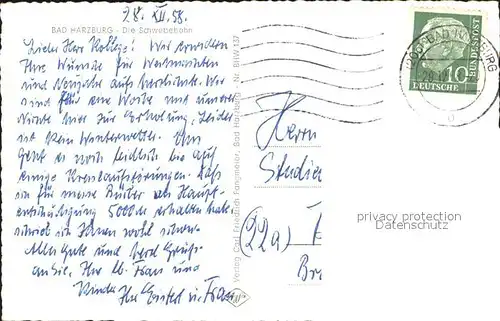 28. XII. 58.
BAD HARZBURG - Die Schwebebahn
Lieber Herr Kollege! Wir erwidern
Ihre Wünsche für Weihnachten
und Neujahr aufs herzlichste. Wir
sind für eine Woche mit unserer
zur Erholung, Leider
ist kein Winterwetter. Uns
geht es noch leidlich bis auf
einige Kreislaufstörungen. Daß
ich für meine Bücher als Haupt-
entschädigung 5000 DM erhalten habe
schrieb ich Ihnen wohl schon.
Alles Gute und herzl. Grüße
an Sie, Ihre lb. Frau und
Kinder Ihr u. Frau
Verlag Carl Friedrich Fangmeier, Bad Harzburg - Nr. BHW 137
DEUTSCHE
BUNDESPOST
10
BAD HARZBURG
Herrn
(22a)
privacy protection
Datenschutz